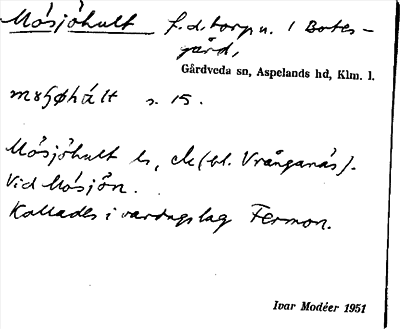 Mósjöhult f.d. torp u. / Botes-
gård,
Gårdveda sn, Aspelands hd, Klm. l.
s. 15.
Mósjöhult ls, ek (bl. Vrånganäs).
Vid Mósjön.
Kallades i vardagslag Fermon.
Ivar Modéer 1951